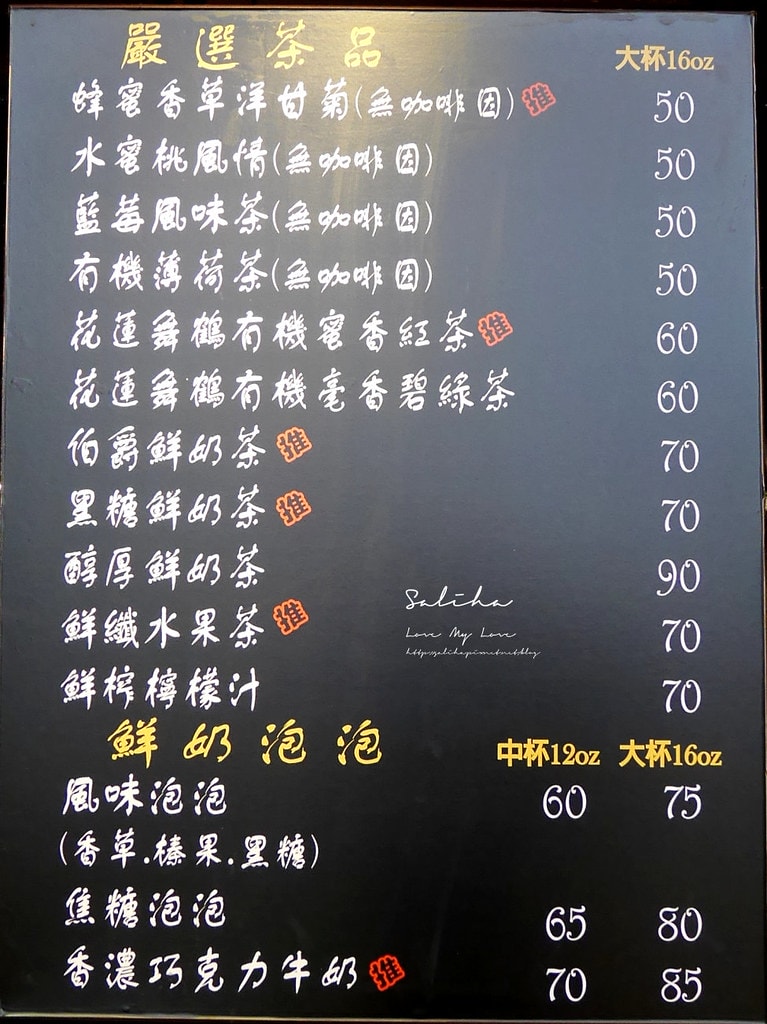 嚴選茶品 大杯16oz
蜂蜜香草洋甘菊(無咖啡因) 推 50
水蜜桃風情(無咖啡因) 50
藍莓風味茶(無咖啡因) 50
有機薄荷茶(無咖啡因) 50
花蓮舞鶴有機蜜香紅茶 推 60
花蓮舞鶴有機毫香碧綠茶 60
伯爵鮮奶茶 推 70
黑糖鮮奶茶 推 70
醇厚鮮奶茶 90
Saliha
Love My Love
鮮纖水果茶 推 70
鮮榨檸檬汁 70
鮮奶泡泡 中杯12oz 大杯16oz
風味泡泡 60 75
(香草.榛果.黑糖)
焦糖泡泡 65 80
香濃巧克力牛奶 推 70 85